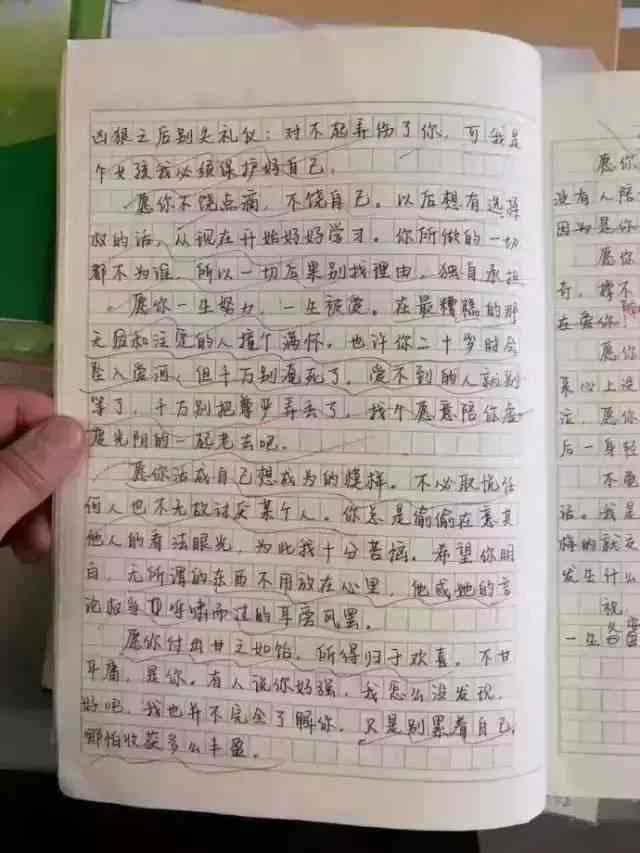 凶狠之后别失礼仪：对不起弄伤了你，可我是
个女孩我必须保护好自己。
愿你不饶点病，不饶自己。以后想有选择
权的话，从现在开始好好学习。你所做的一切
都不为谁，所以一切后果别找理由，独自承担
愿你一生努力，一生被爱。在最糟糕的那
天后和注定的人撞个满怀。也许你二十岁时会
坠入爱河，但千万别淹死了，爱不到的人就别
等了，千万别把尊严弄丢了，找个愿意陪你虚
度光阴的一起老去吧。
愿你活成自己想成为的模样。不必取悦任
何人也不无故讨厌某个人。你总是偷偷在意其
他人的看法眼光，为此我十分苦恼。希望你明
白，无所谓的东西不用放在心里，他或她的言
论权当呼啸而过的耳旁风罢。
愿你付出甘之如饴，所得归于欢喜。不甘
平庸，是你。有人说你好强，我怎么没发现，
好吧，我也并不完全了解你。只是别累着自己，
哪怕收获多么丰盈。
愿你
没有人陪
因为是你
愿你
奇，撑不
在爱你
愿你
某心上没
泣，愿你
后一身轻
不
话。我是
悔的就
发生什么
祝
一生